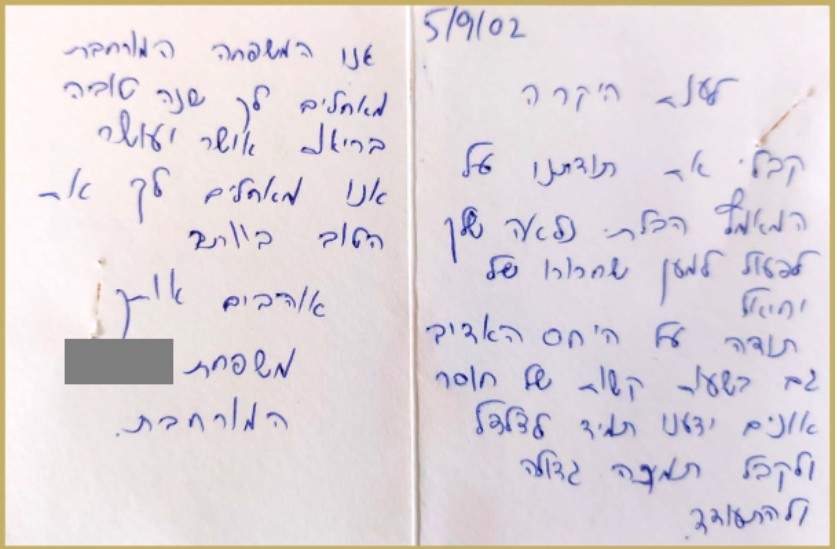 5/9/02
לענת היקרה
קבלי את תודתנו על
המאמץ הבלתי נלאה שלך
לפעול למען שחרורו של
יחיאל
תודה על היחס האדיב
גם בשעות קשות של חוסר
אונים ידענו תמיד לצלצל
ולקבל תמיכה גדולה
ולהתעודד.
אנו המשפחה המורחבת
מאחלים לך שנה טובה
בריאות אושר ועושר
אנו מאחלים לך את
הטוב ביותר
אוהבים אותך
משפחת
המורחבת.